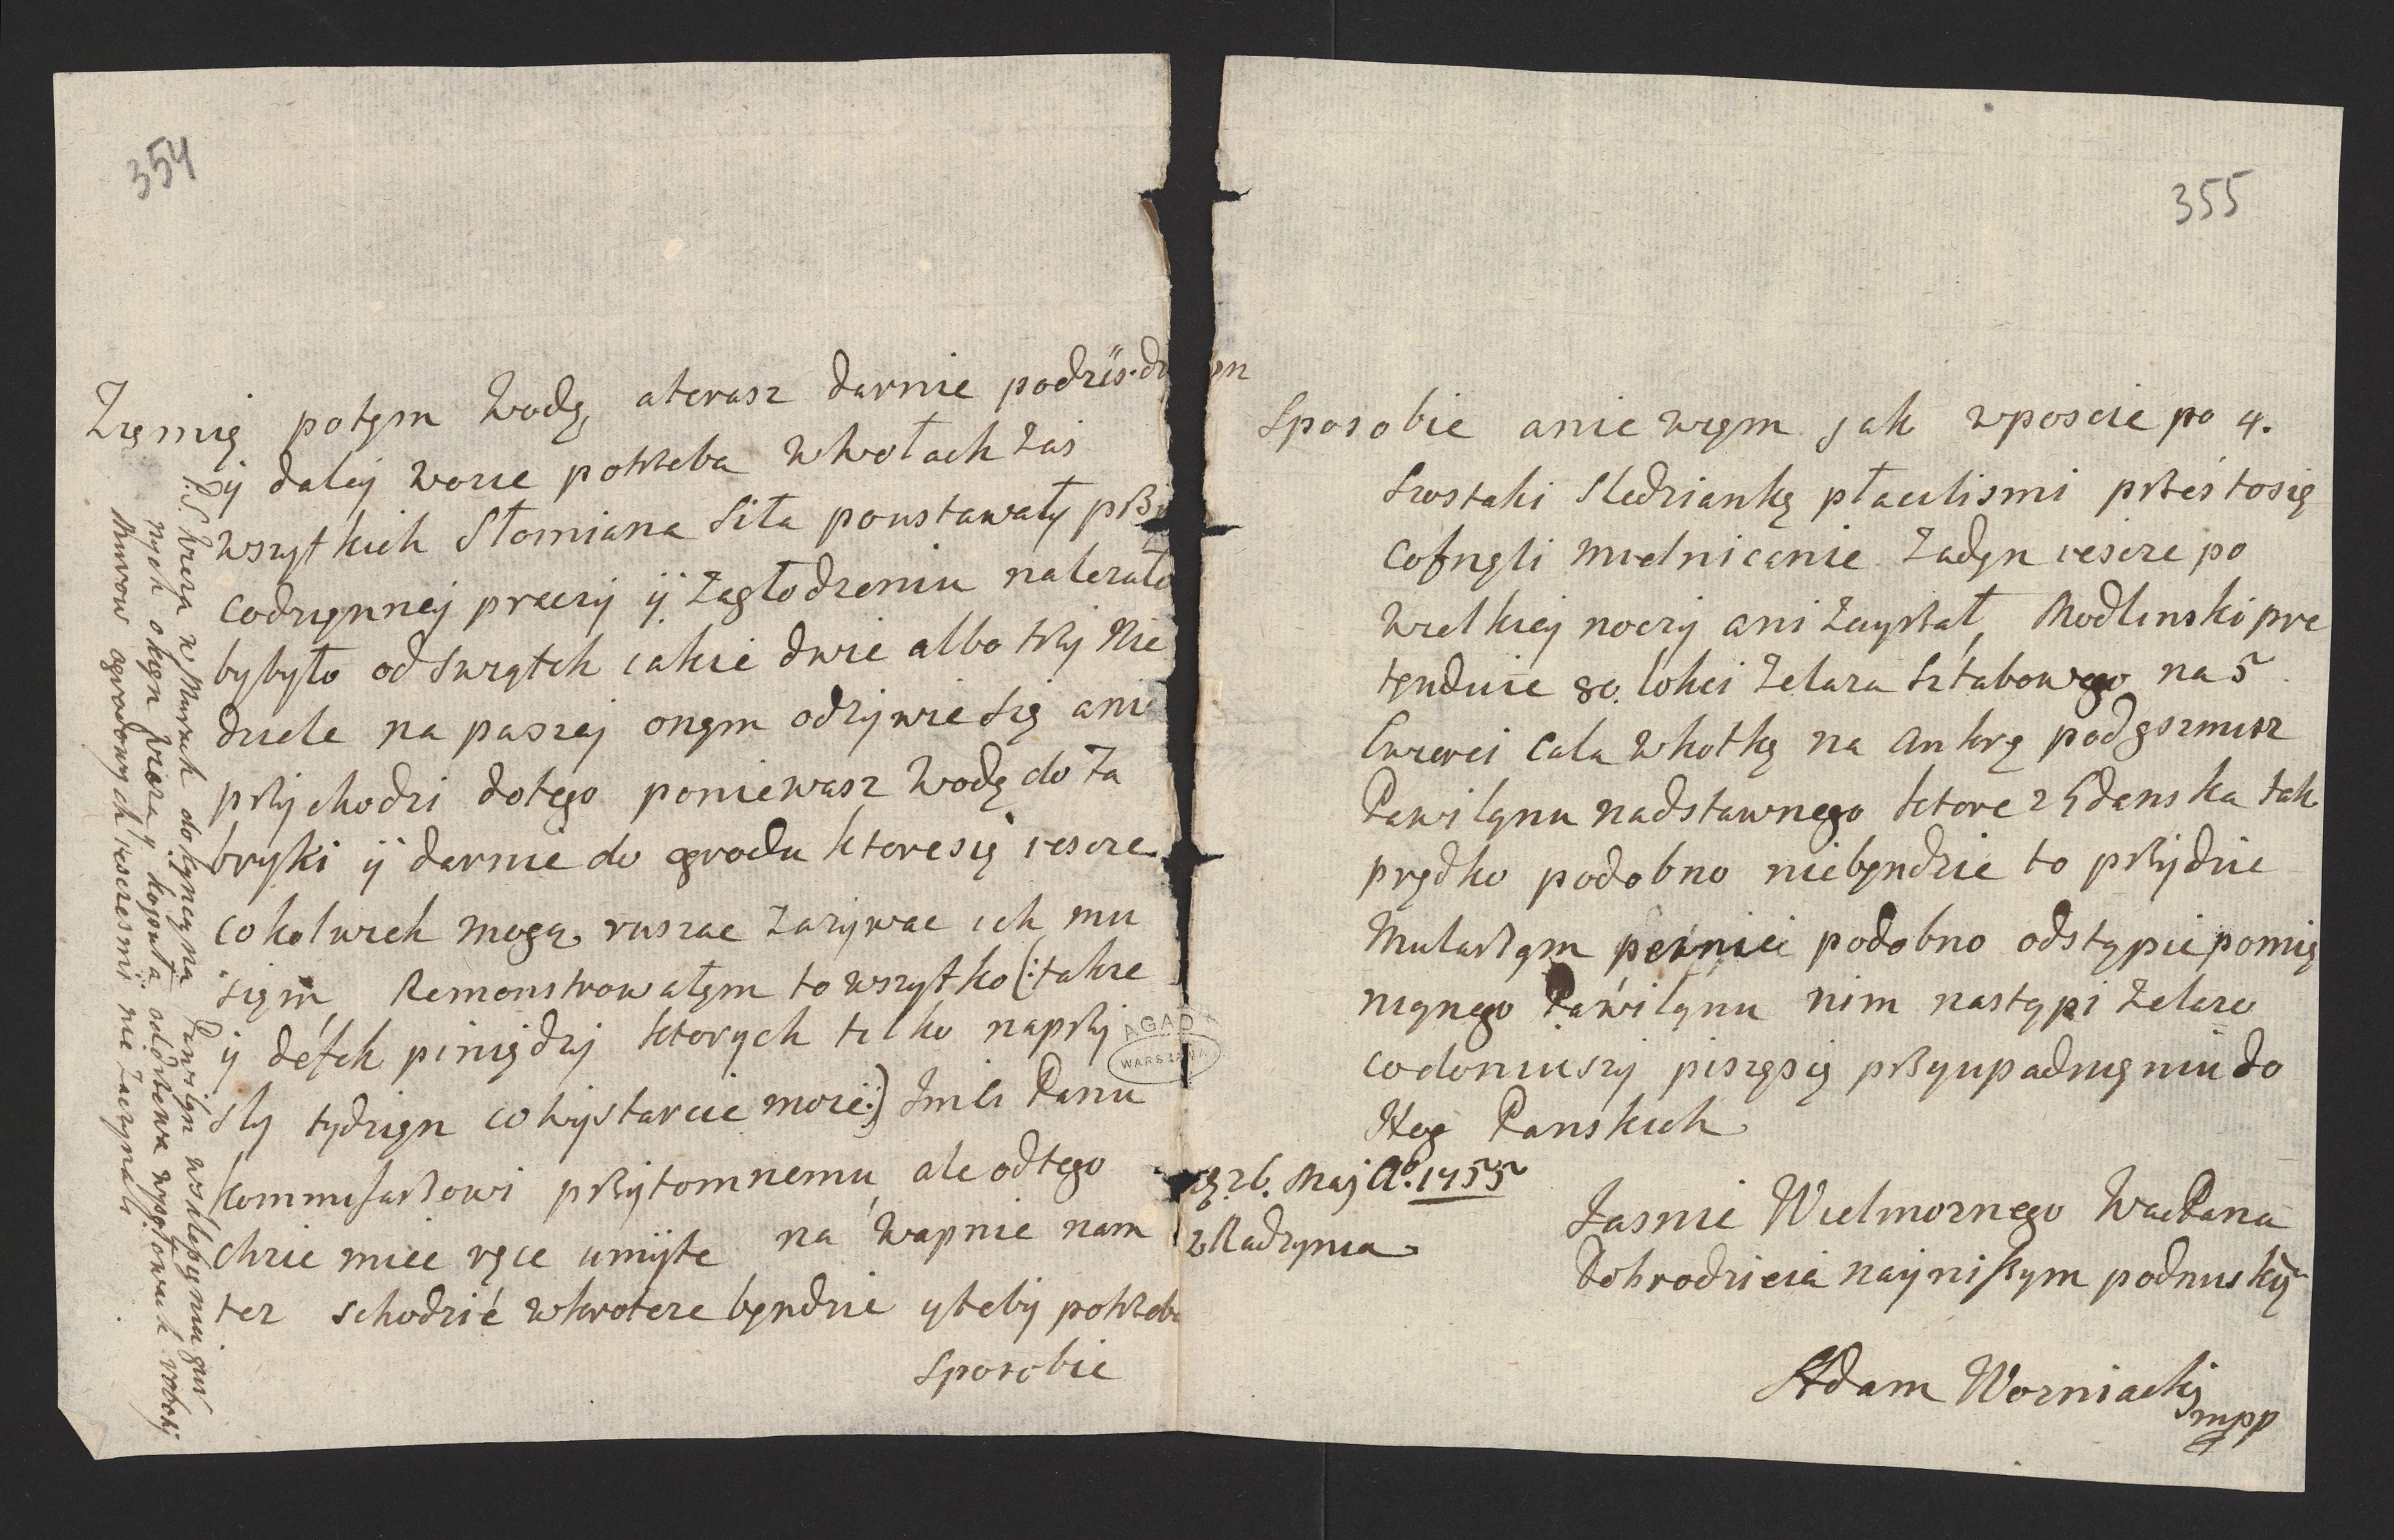 354
Zięmię potęm Wodę, aterasz darnie podzis. dzięn
ÿ daley wozic potrzeba Wwołach zas
wszytkich Słomiana Siła poustawały przy
codzięnney praczy ÿ zagłodzeniu nalezało
bybyło odswiątek iakie dwie albo trzy Nie
dziele na paszej onęm odzywic się ani
przychodzi dotego poniewasz Wodę do Fa
bryki ÿ darnie do ogrodu ktoresię iescze
cokolwiek mogą ruszac zazywac ich mu
sięm, Remonstrowałęm to wszytko (: takze
ÿ défek piniędzy ktorych tylko naprzy
sly tydzięn cowystarcic moze :) Imći Panu
Kommissarzowi przytomnemu, ale odtego
chcie miec ręce umyte na wapnie nam
tez schodzić wkrotcze będzie yteby potrzeba
Sposobic
P.S. Wieza w Murach dokączona Pawilęn wsklepięniu
nych okięn wieza y kopuła
Murow ogrodowych iesczesmi nie zaczynali
355
Sposobic aniewięm jak wposcie po 4.
Szostaki Sledziankę płacilismi przes tosię
cofnęli mielnicanie zadęn iescze po
Wielkiej noczy ani zayrzał, Modlinski pre
tęnduie 80. lokci zelaza sztabowego na 5
cwierci cala Wkotkę na Ankrę podgszmisz
Pawilęnu nadstawnego ktore z Gdanska tak
prędko podobno niebęndzie to przydzie
Mularzęm podobno odstąpic pomię
nięnego Pawilęnu nim nastąpi zelazo
codoniuszy piszęsię przyupadnięniu do
Nog Panskich
26. Maj Ao. 1755
z Radzynia
Jasnie Wielmoznego WacPana
Dobrodzieia nayniszym podnuskÿ
Adam Wozniacki
mpp
AGAD
WARSZAWA